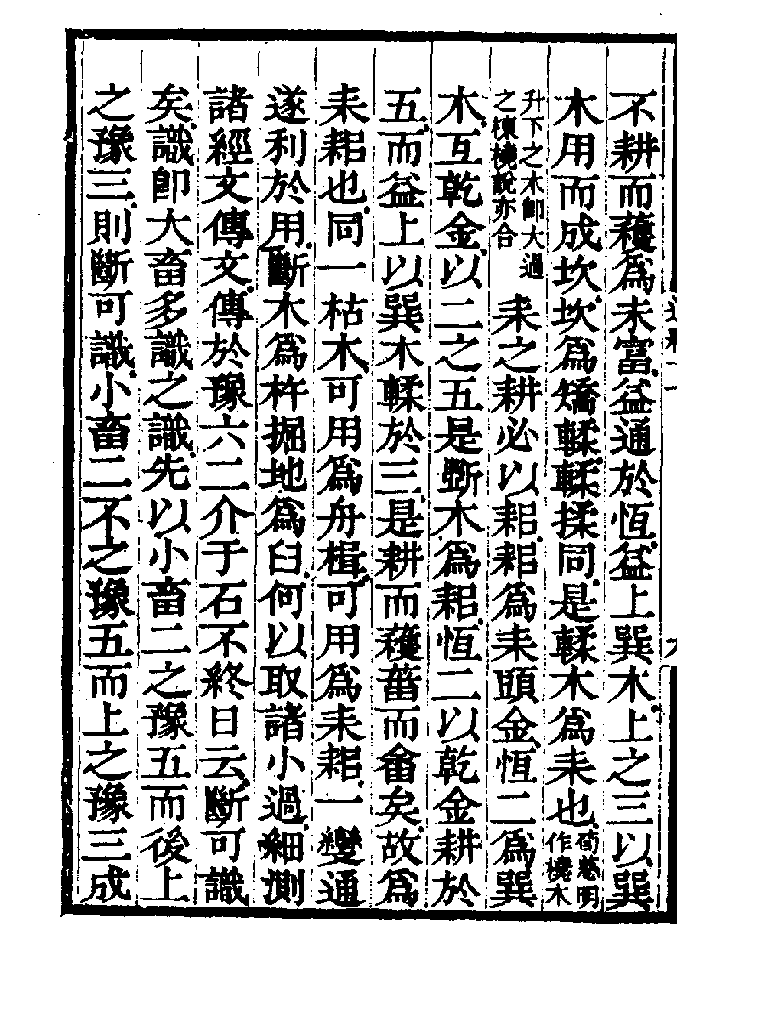 不耕而穫為未富益通於恆益上巽木上之三以巽
木用而成坎坎為矯輮輮揉同是輮木為耒也荀慈明作橈木
升下之木卽大過之棟橈說亦合耒之耕必以耜耜為耒頭金恆二為巽
木互乾金以二之五是斲木為耜恆二以乾金耕於
五而益上以巽木輮於三是耕而穫菑而畬矣故為
耒耜也同一枯木可用為舟楫可用為耒耜一變通
遂利於用斷木為杵掘地為臼何以取諸小過細測
諸經文傳文傳於豫六二介于石不終日云斷可識
矣識卽大畜多識之識先以小畜二之豫五而後上
之豫三則斷可識小畜二不之豫五而上之豫三成